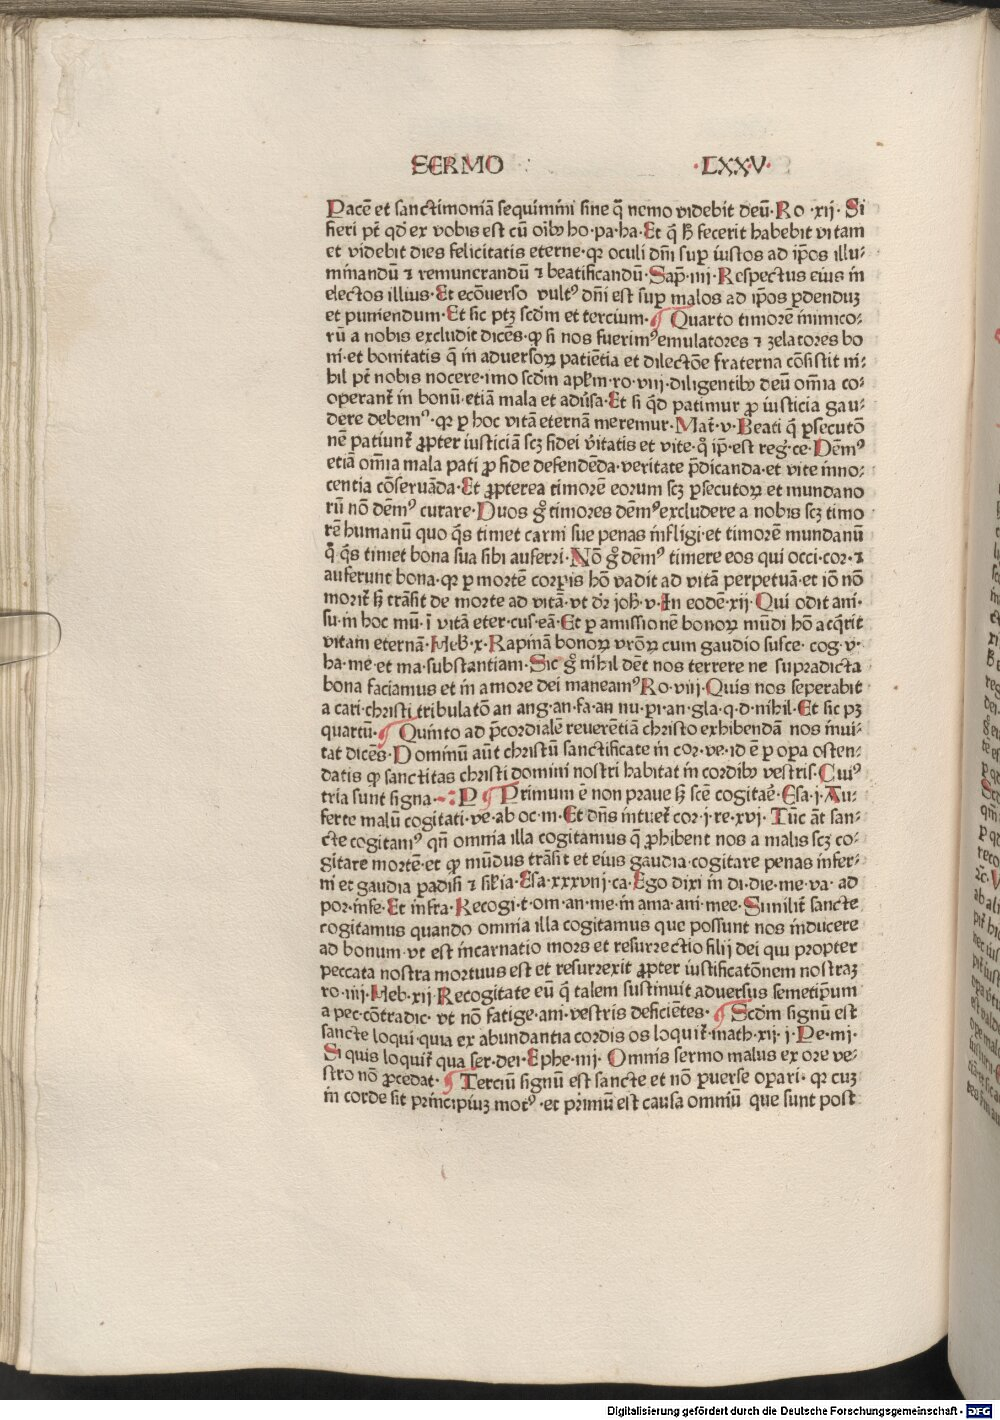 SERMO ·LXXV·
Pacē et sanctimoniā sequimini sine q̄ nemo videbit deū·Ro ·xij· Si
fieri pōt qd ex vobis est cū oībꝰ ho·pa·ha·Et q̄ hͦ fecerit habebit vitam
et videbit dies felicitatis eterne·qꝛ oculi dn̄i suꝑ iustos ad ip̄os illu⸗
minandū ⁊ remunerandū ⁊ beatificandū·Sap̄·iiij·Respectus eius in
electos illius·Et ecōuerso vultꝰ dn̄i est suꝑ malos ad ip̄os ꝑdenduꝫ
et puniendum·Et sic ptꝫ scd̄m et tercium·¶ Quarto timorē inimico⸗
rū a nobis excludit dicēs·ꝙ si nos fuerimꝰ emulatores ⁊ zelatores bo
ni·et bonitatis q̄ in aduersoꝝ patiētia et dilectōe fraterna cōsistit ni⸗
hil pōt nobis nocere·imo scd̄m apl̄m·ro·viij·diligentibꝰ deū om̄ia co⸗
operant̄ in bonū·etiā mala et adūsa·Et si qͥd patimur ꝓ iusticia gau⸗
dere debemꝰ·qꝛ ꝑ hoc vitā eternā meremur·Mat̄·v·Beati q̄ ꝑsecutō
nē patiunt̄ ꝓpter iusticiā scꝫ fidei v̄itatis et vite·qͦ ip̄·est reg·ce·Dēmꝰ
etiā om̄ia mala pati ꝓ fide defendēda·veritate p̄dicanda·et vite inno⸗
centia cōseruāda·Et ꝓpterea timorē eorum scꝫ ꝑsecutoꝝ et mundano
rū nō dēmꝰ curare·Duos gͦ timores dēmꝰ excludere a nobis scꝫ timo
rē humanū quo qͥs timet carni sue penas infligi·et timorē mundanū
qͦ qͥs timet bona sua sibi auferri·Nō gͦ dēmꝰ timere eos qui occi·cor·⁊
auferunt bona·qꝛ ꝑ mortē corꝑis hō vadit ad vitā perpetuā·et iō nō
morit̄ sꝫ trāsit de morte ad vitā·vt dr̄ joh̄·v·In eodē·xij·Qui odit ani·
su·in hoc mū·ī vitā eter·cus·eā·Et ꝑ amissionē bonoꝝ mūdi hō acq̄rit
vitam eternā·Heb̄·x·Rapinā bonoꝝ vr̄oꝝ cum gaudio susce·cog·v·
ha·me·et ma·substantiam·Sic gͦ nihil dēt nos terrere ne supradicta
bona faciamus et in amore dei maneamꝰ Ro·viij·Quis nos seperabit
a cari·christi tribulatō an ang·an·fa·an nu·pi·an·gla·q·d·nihil·Et sic pꝫ
quartū·¶ Quinto ad p̄cordialē reuerētiā christo exhibendā nos inui⸗
tat dicēs·Dominū aūt christū sanctificate in cor·ve·id ē ꝑ oꝑa osten⸗
datis ꝙ sanctitas christi domini nostri habitat in cordibꝰ vestris·Cuiꝰ
tria sunt signa·P ¶ Primum ē non praue sꝫ scē cogitaē·Esa·j·Au⸗
ferte malū cogitati·ve·ab oc·m·Et dn̄s intuet̄ cor·j·re·xvj·Tūc āt san⸗
cte cogitamꝰ qn̄ omnia illa cogitamus q̄ ꝓhibent nos a malis scꝫ co⸗
gitare mortē·et ꝙ mūdus trāsit et eius gaudia·cogitare penas infer⸗
ni et gaudia ꝑadisi ⁊ sil̄ia·Esa·xxxviij·ca·Ego dixi in di·die·me·va·ad
por·infe·Et infra·Recogi·t·om·an·me·in ama·ani·mee·Similit̄ sancte
cogitamus quando omnia illa cogitamus que possunt nos inducere
ad bonum·vt est incarnatio mors et resurrectio filij dei qui propter
peccata nostra mortuus est et resurrexit ꝓpter iustificatōnem nostraꝫ
ro·iiij·Heb·xij Recogitate eū q̄ talem sustinuit aduersus semetip̄um
a pec·cōtradic·vt nō fatige·ani·vestris deficiētes·¶ Scd̄m signū est
sancte loqui·quia ex abundantia cordis os loquit̄·math·xij·j·Pe·iiij·
Si quis loquit̄ qua ser·dei·Ephe·iiij·Omnis sermo malus ex ore ve⸗
stro nō ꝓcedat·¶ Terciū signū est sancte et nō ꝑuerse oꝑari·qꝛ cuꝫ
in corde sit principiuꝫ motꝰ·et primū est causa omniū que sunt post
Digitalisierung gefördert durch die Deutsche Forschungsgemeinschaft · DFG